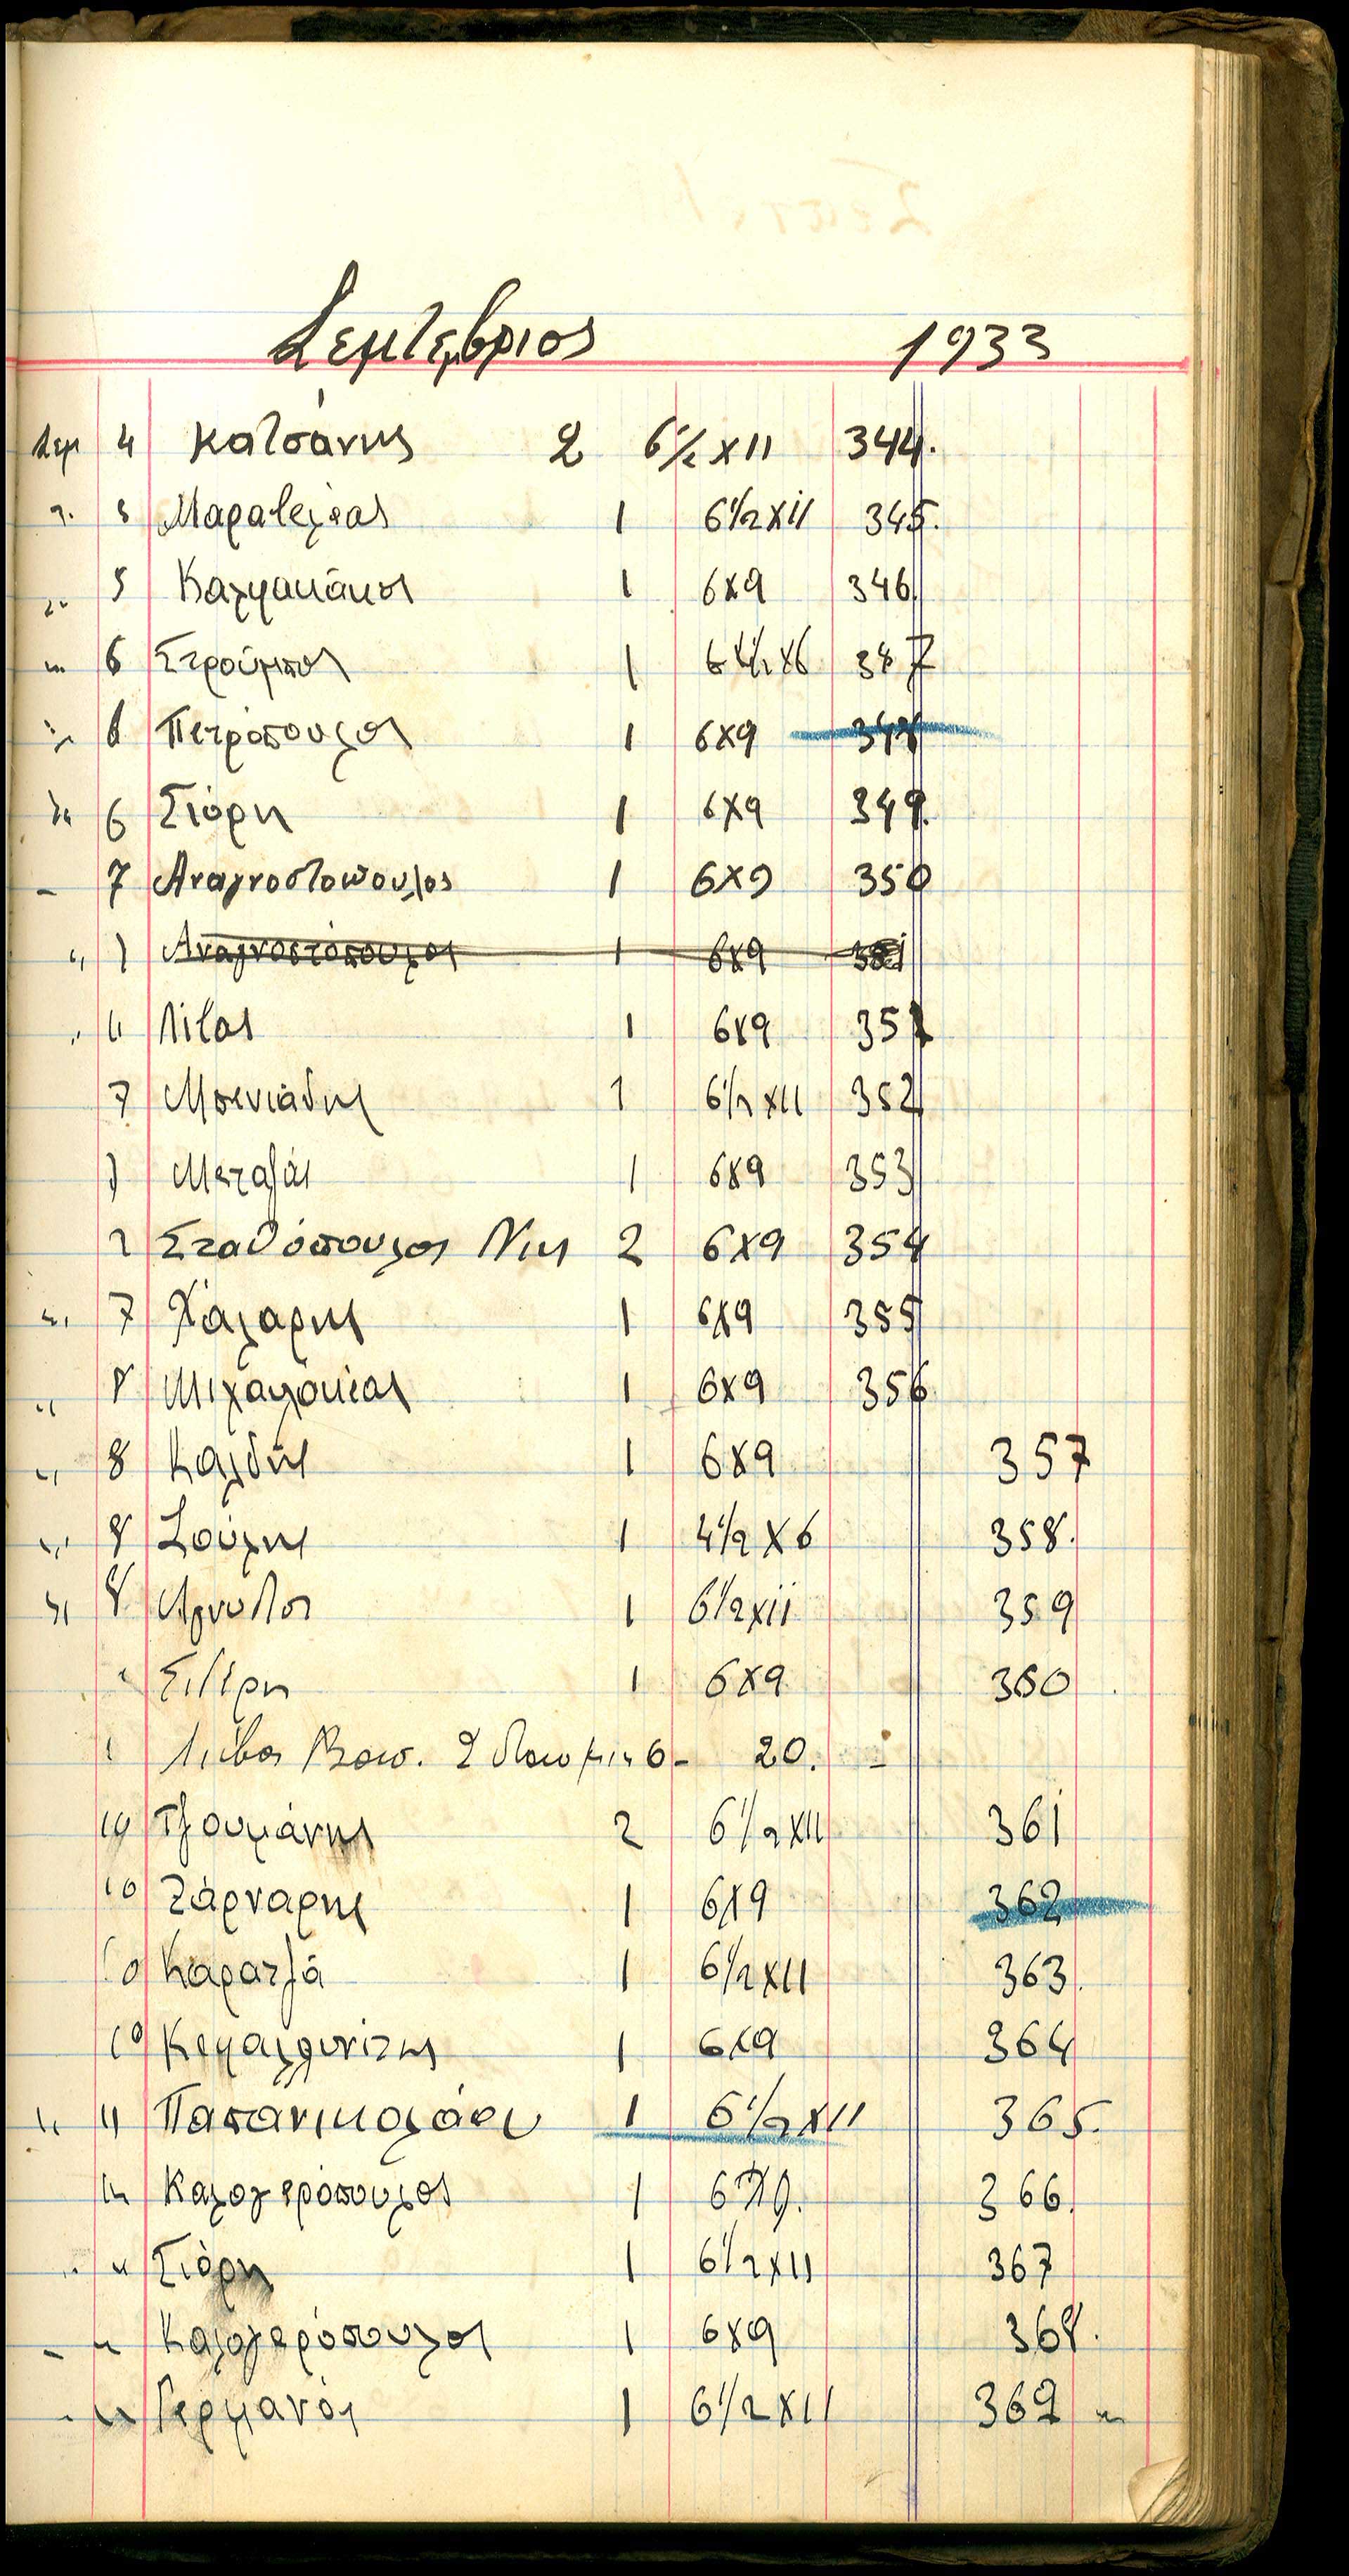 Σεπτεμβριος 1933
Σεπ 4 Κατσάνης 2 6½ x 11 344.
5 Μαρατζέας 1 6½ x 11 345.
5 Καλφακάκος 1 6x9 346
6 Στρούμπος 1 347
6 Πετρόπουλος 1 6x9 348
6 Σιόρη 1 6x9 349.
7 Αναγνοστοπουλος 1 6x9 350
7 Αναγνοστόπουλος 1 6x9 351
" 1 6x9 351
7 Μπενιάδης 1 6½ x 11 352
7 Μεταξάς 1 6x9 353
7 Σταθόπουλος Νικ 2 6x9 354
" 7 Χάλαρης 1 6x9 355
" 8 Μιχαλακέας 1 6x9 356
" 8 Καλδής 1 6x9 357
" 8 Σούλης 1 4½ x 6 358.
" 8 1 6½ x 11 359
" 1 6x9 360
2 6 - 20. -
10 Τζουμάνης 2 6½ x 11 361
10 Ζάρναρης 1 6x9 362
10 Καρατζά 1 6½ x 11 363.
10 1 6x9 364
" 11 Παπανικολάου 1 6½ x 11 365.
" Καλογερόπουλος 1 6x9. 366.
" " Σιόρη 1 6½ x 11 367
" " Καλογερόπουλος 1 6x9 368.
" " Γερμανός 1 6½ x 11 369 "